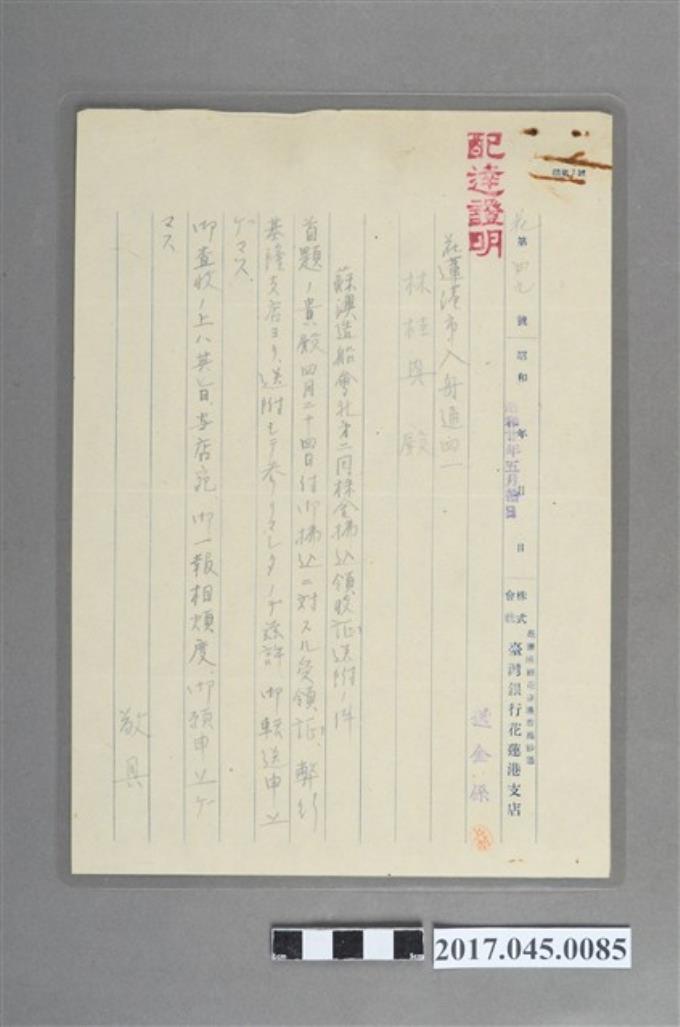 花第四九號 昭和 年 月 日
昭和廿年五月
株式會社 臺灣銀行花蓮港支店
送金係
配達證明
花蓮港市入舟通四一
林桂興殿
蘇澳造船會社第二回株金拂込領收証送附ノ件
首題ノ貴殿四月二十四日付御拂込ニ対スル受領証、弊行
基隆支店ヨリ送附モテ参リマシタノデ茲許御転送申上
ゲマス、
御査收ノ上ハ其旨当店宛御一報相煩度、御願申上ゲ
マス
敬具
2017.045.0085